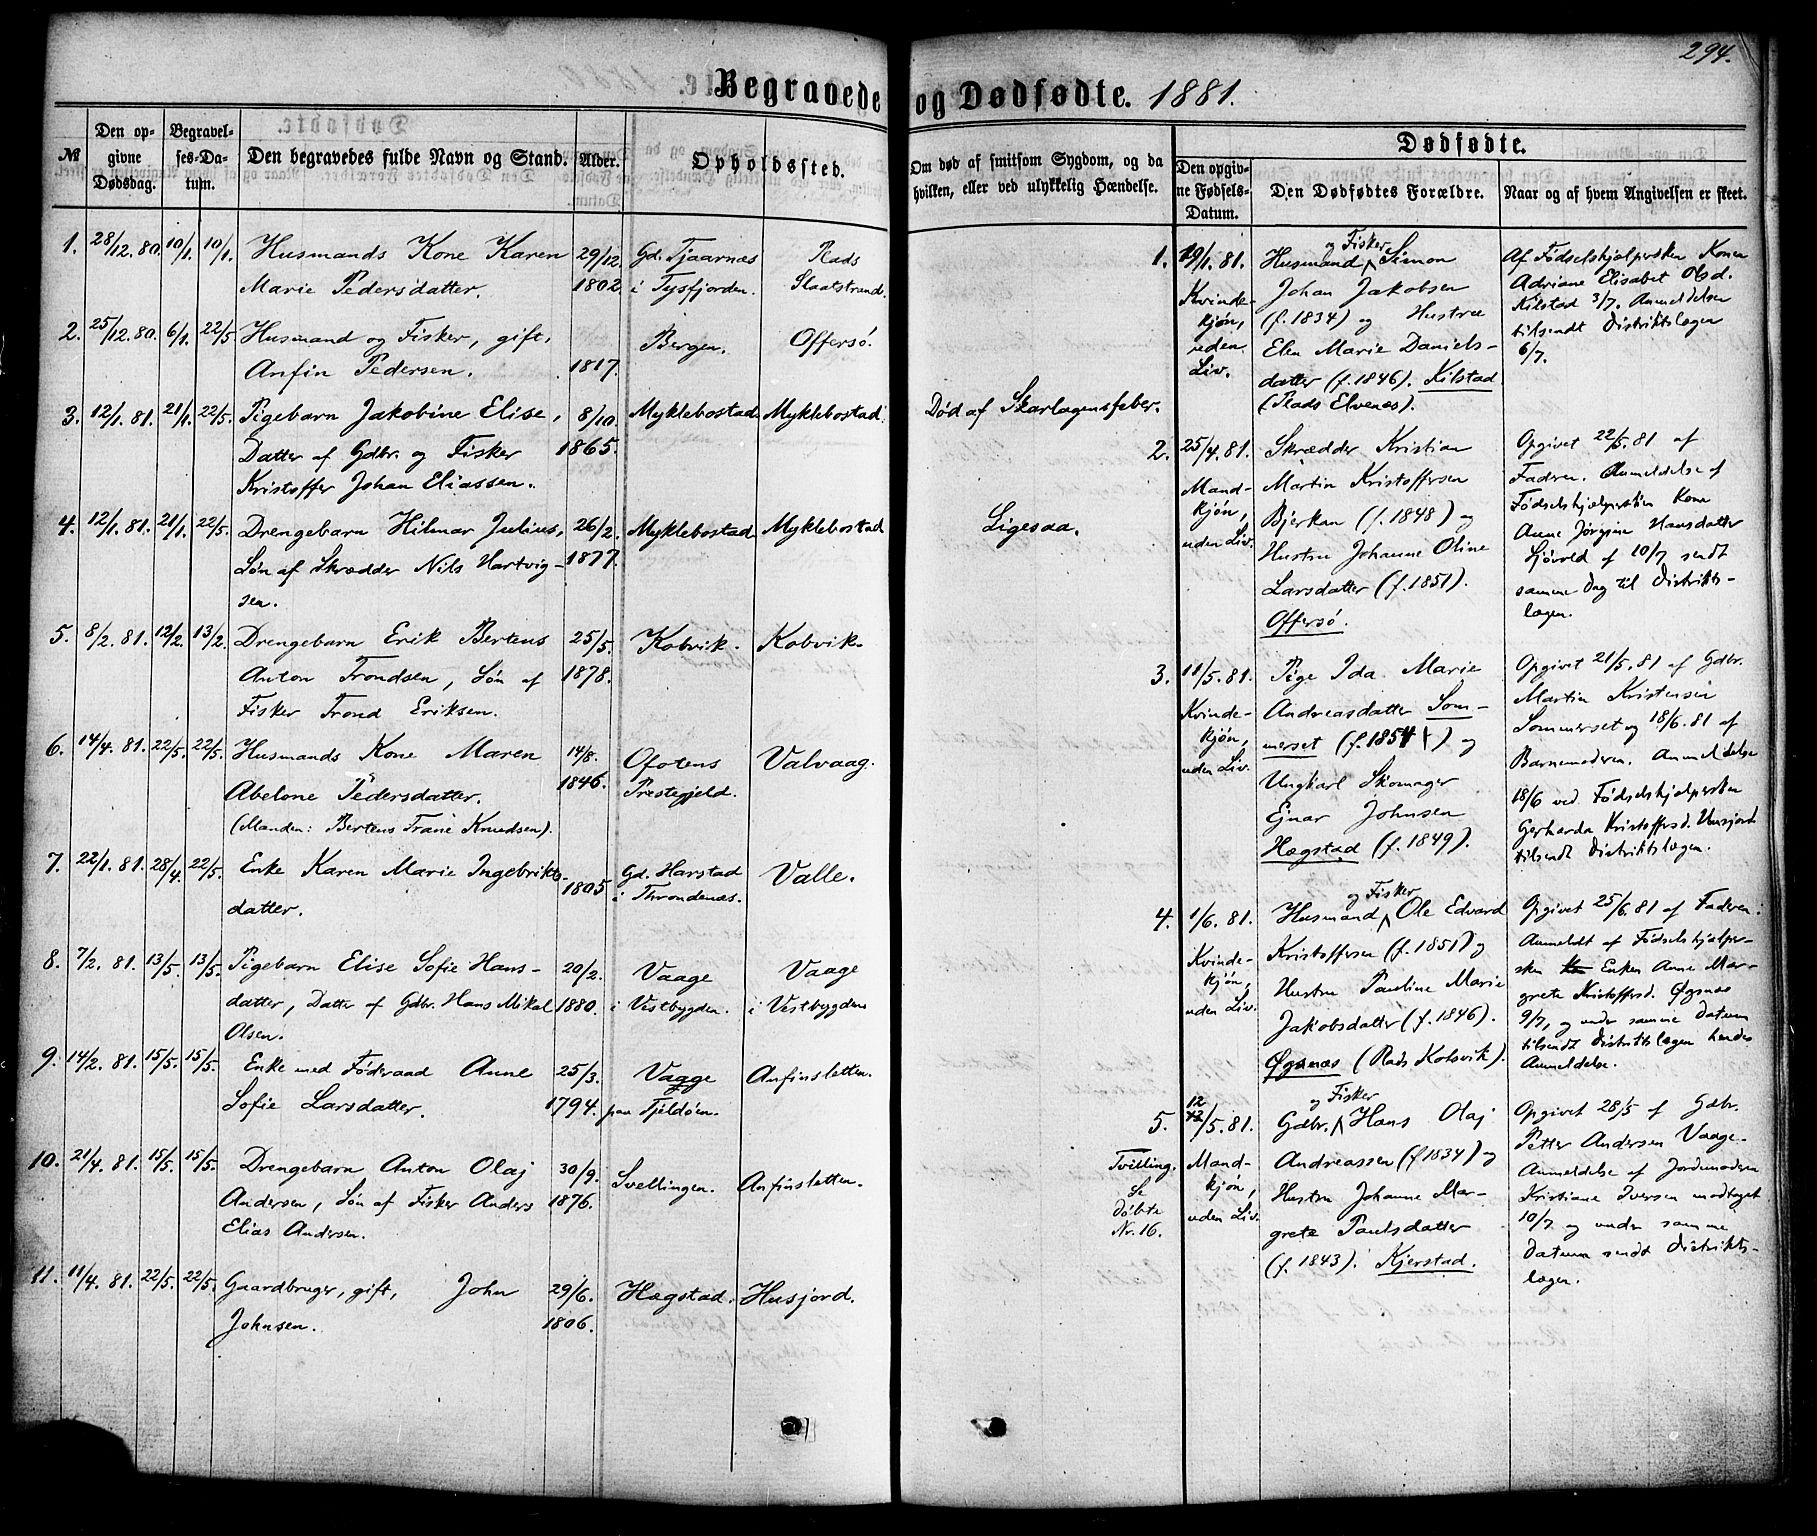 294.
Begravede og Dødfødte. 1881.
№
Den opgivne Dødsdag.
Begravelses-Datum.
Den begravedes fulde Navn og Stand.
Alder.
Opholdssted.
Om død af smitsom Sygdom, og da
hvilken, eller ved ulykkelig Hændelse.
Dødfødte.
Den opgivne Fødsels-Datum.
Den Dødfødtes Forældre.
Naar og af hvem Angivelsen er skeet.
1. 28/12. 80. 10/1. 10/1. Husmands Kone Karen 29/12. Gd. Tjaarnæs Plads
Marie Pedersdatter. 1802. i Tysfjorden. Slaatstrand.
2. 25/12. 80. 6/1. 22/5. Husmand og Fisker, gift, Bergen. Offersø.
Anfin Pedersen. 1817.
3. 12/1. 81. 21/1. 22/5. Pigebarn Jakobine Elise, 8/10. Myklebostad Myklebostad. Død af Skarlagensfeber.
Datter af Gdbr. og Fisker 1865.
Kristoffer Johan Eliassen.
4. 12/1. 81. 21/1. 22/5. Drengebarn Hilmar Julius, 26/2. Myklebostad Myklebostad Ligesaa.
Søn af Skrædder Nils Hartvig- 1877.
sen.
5. 8/2. 81. 12/2. 13/2. Drengebarn Erik Bertens 25/5. Kobvik. Kobvik.
Anton Trondsen, Søn af 1878.
Fisker Trond Eriksen.
6. 14/4. 81. 22/5. 22/5. Husmands Kone Maren 14/8. Ofotens Valvaag.
Abelone Pedersdatter. 1846. Prestegjeld.
(Manden: Bertens Trane Knudsen).
7. 22/1. 81. 28/4. 22/5. Enke Karen Marie Ingebrikts- 1805. Gd. Harstad Valle.
datter. i Throndenæs.
8. 7/2. 81. 13/5. 13/5. Pigebarn Elise Sofie Hans- 20/2. Vaage Vaage
datter, Datter af Gdbr. Hans Mikal 1880. i Vestbygden. i Vestbygden
Olsen.
9. 14/2. 81. 15/5. 15/5. Enke med Føderaad Anne 25/3. Vagge Anfinsletten.
Sofie Larsdatter. 1794. paa Tjeldøen.
10. 21/4. 81. 15/5. 15/5. Drengebarn Anton Olaj 30/9. Svellingen. Anfinsletten.
Andersen, Søn af Fisker Anders 1876.
Elias Andersen.
11. 11/4. 81. 22/5. 22/5. Gaardbruger, gift, John 29/6. Hægstad. Husjord.
Johnsen. 1806.
1. 19/1. 81.
Kvinde-
kjøn,
uden
Liv.
og Fisker
Husmand Simon
Johan Jakobsen
(f. 1834) og Hustru
Elen Marie Daniels-
datter (f. 1846). Kilstad
(Plads Elvenes).
Af Fødselshjælpersken Konen
Adriane Elisabet Olsd.
Kilstad 3/7. Anmeldelsen
tilsendt Distriktslægen
6/7.
2. 25/4. 81.
Mand-
kjøn,
uden Liv.
Skrædder Kristian
Martin Kristoffersen
Bjerkan (f. 1848) og
Hustru Johanne Oline
Larsdatter (f. 1851).
Offersø.
Opgivet 22/5. 81 af
Faderen. Anmeldelse af
Fødselshjælpersken Kone
Anne Jørgine Hansdatter
af 10/7 sendt
samme Dag til Distrikts-
lægen.
3. 11/5. 81.
Kvinde-
kjøn,
uden Liv.
Pige Ida Marie
Andreasdatter Som-
merset (f. 1854) og
Ungkarl Skomager
Ejnar Johnsen
Hægstad (f. 1849).
Opgivet 21/5. 81 af Gdbr.
Martin Kristensen
Sommerset og 18/6. 81 af
Barnemoderen. Anmeldelse
18/6 ved Fødselshjælpersken
Gerharda Kristoffersd. Husjord
tilsendt Distriktslægen.
4. 1/6. 81.
Kvinde-
kjøn,
uden Liv.
og Fisker
Husmand Ole Edvard
Kristoffersen (f. 1851) og
Hustru Pauline Marie
Jakobsdatter (f. 1846).
Øgsnæs (Plads Kobvik).
Opgivet 25/6. 81 af Faderen:
Anmeldt af Fødselshjælper-
sken Enken Anne Mar-
grete Kristoffersd. Øgsnæs
9/7, og under samme Datum
tilsendt Distriktslægen hendes
Anmeldelse.
5. 12/5. 81.
Tvilling.
Se
Døbte
Nr. 16.
Mand-
kjøn,
uden Liv.
og Fisker
Gdbr. Hans Olaj
Andreassen (f 1834) og
Hustru Johanne Mar-
grete Paulsdatter
(f. 1843). Kjerstad.
Opgivet 28/5 af Gdbr.
Petter Andersen Vaage.
Anmeldelse af Jordmoderen
Kristiane Iversen modtaget
10/7 og under samme
Datum sendt Distrikts-
lægen.